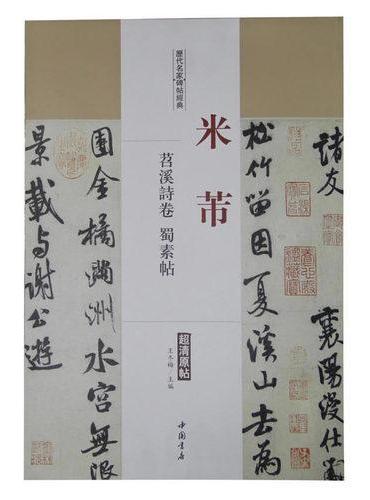 歷代名家碑帖經典
米芾
苕溪詩卷 蜀素帖
超清原帖
王冬梅 主編
中國書店
諸友 襄陽漫仕
松竹留因夏溪山去為
團金橘滿洲水宮無限
景載与謝公遊